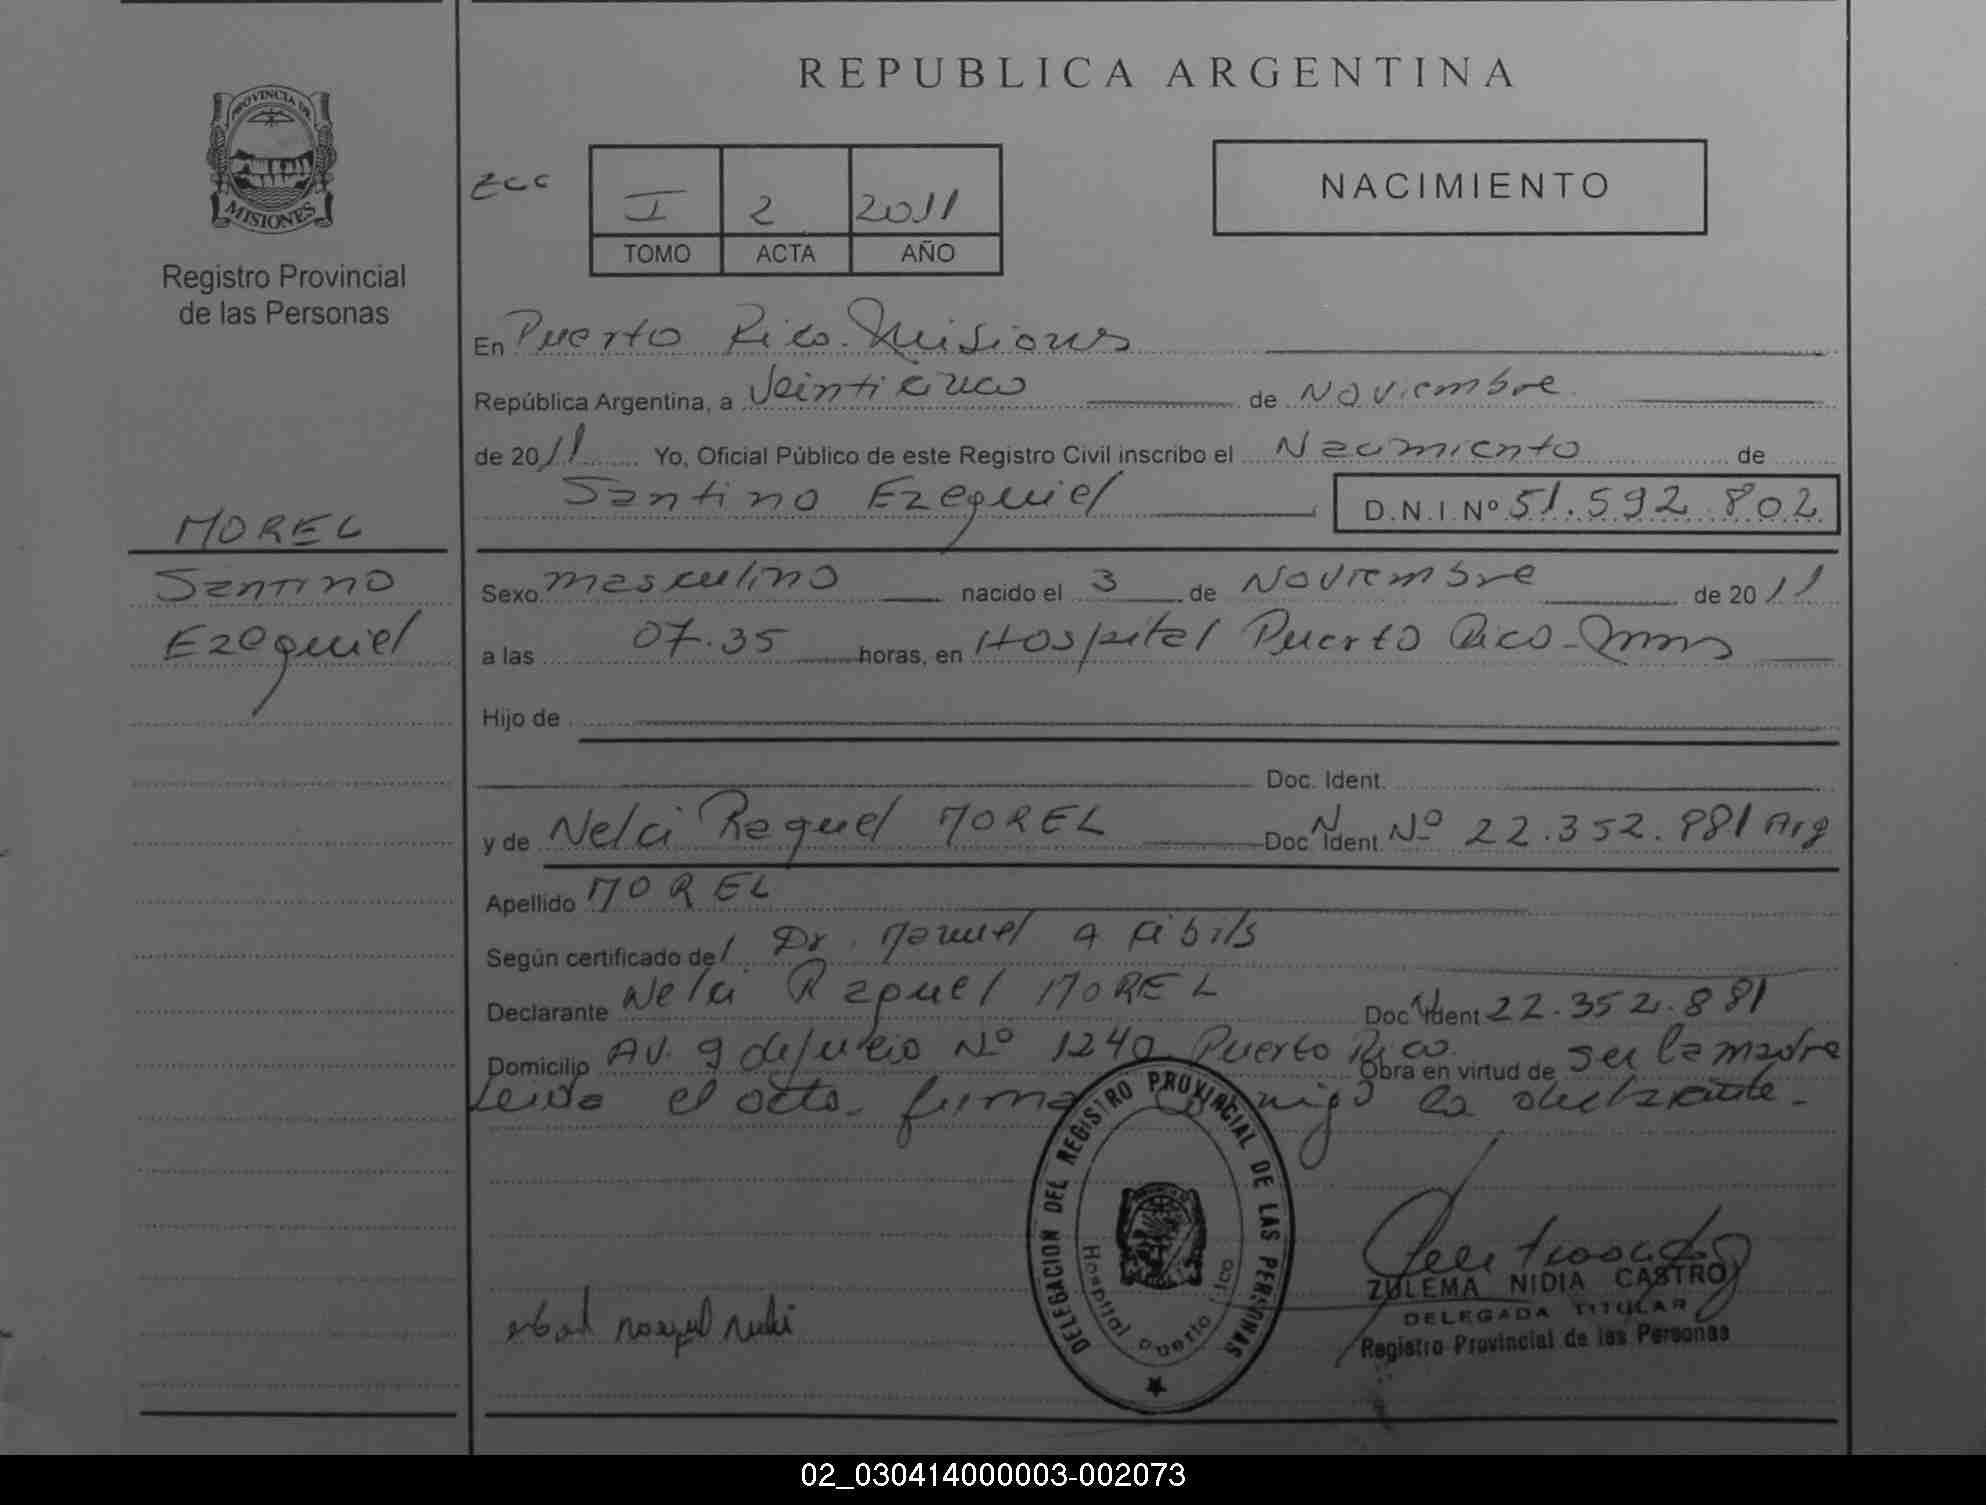 REPUBLICA ARGENTINA
PROVINCIA DE
MISIONES
Registro Provincial
de las Personas
I 2 2011
TOMO ACTA AÑO
NACIMIENTO
En Puerto Rico. Misiones
República Argentina, a Veinticinco de Noviembre
de 2011 Yo, Oficial Público de este Registro Civil inscribo el Nacimiento de
Santino Ezequiel D.N.I. Nº 51.592.802
MOREL
Santino
Ezequiel
Sexo masculino nacido el 3 de Noviembre de 2011
a las 07.35 horas, en Hospital Puerto Rico - Mnes
Hijo de
Doc. Ident.
y de Nelci Raquel MOREL Doc. N Ident. Nº 22.352.881 Arg
Apellido MOREL
Según certificado del Dr. Manuel A
Declarante Nelci Raquel MOREL Doc. N Ident 22.352.881
Domicilio AV. 9 de Julio Nº 1240 Puerto Rico. Obra en virtud de ser la madre
Leida el acta. firma conmigo la declarante.
DELEGACION DEL REGISTRO PROVINCIAL DE LAS PERSONAS
Hospital Puerto Rico
ZULEMA NIDIA CASTRO
DELEGADA TITULAR
Registro Provincial de las Personas
02_030414000003-002073